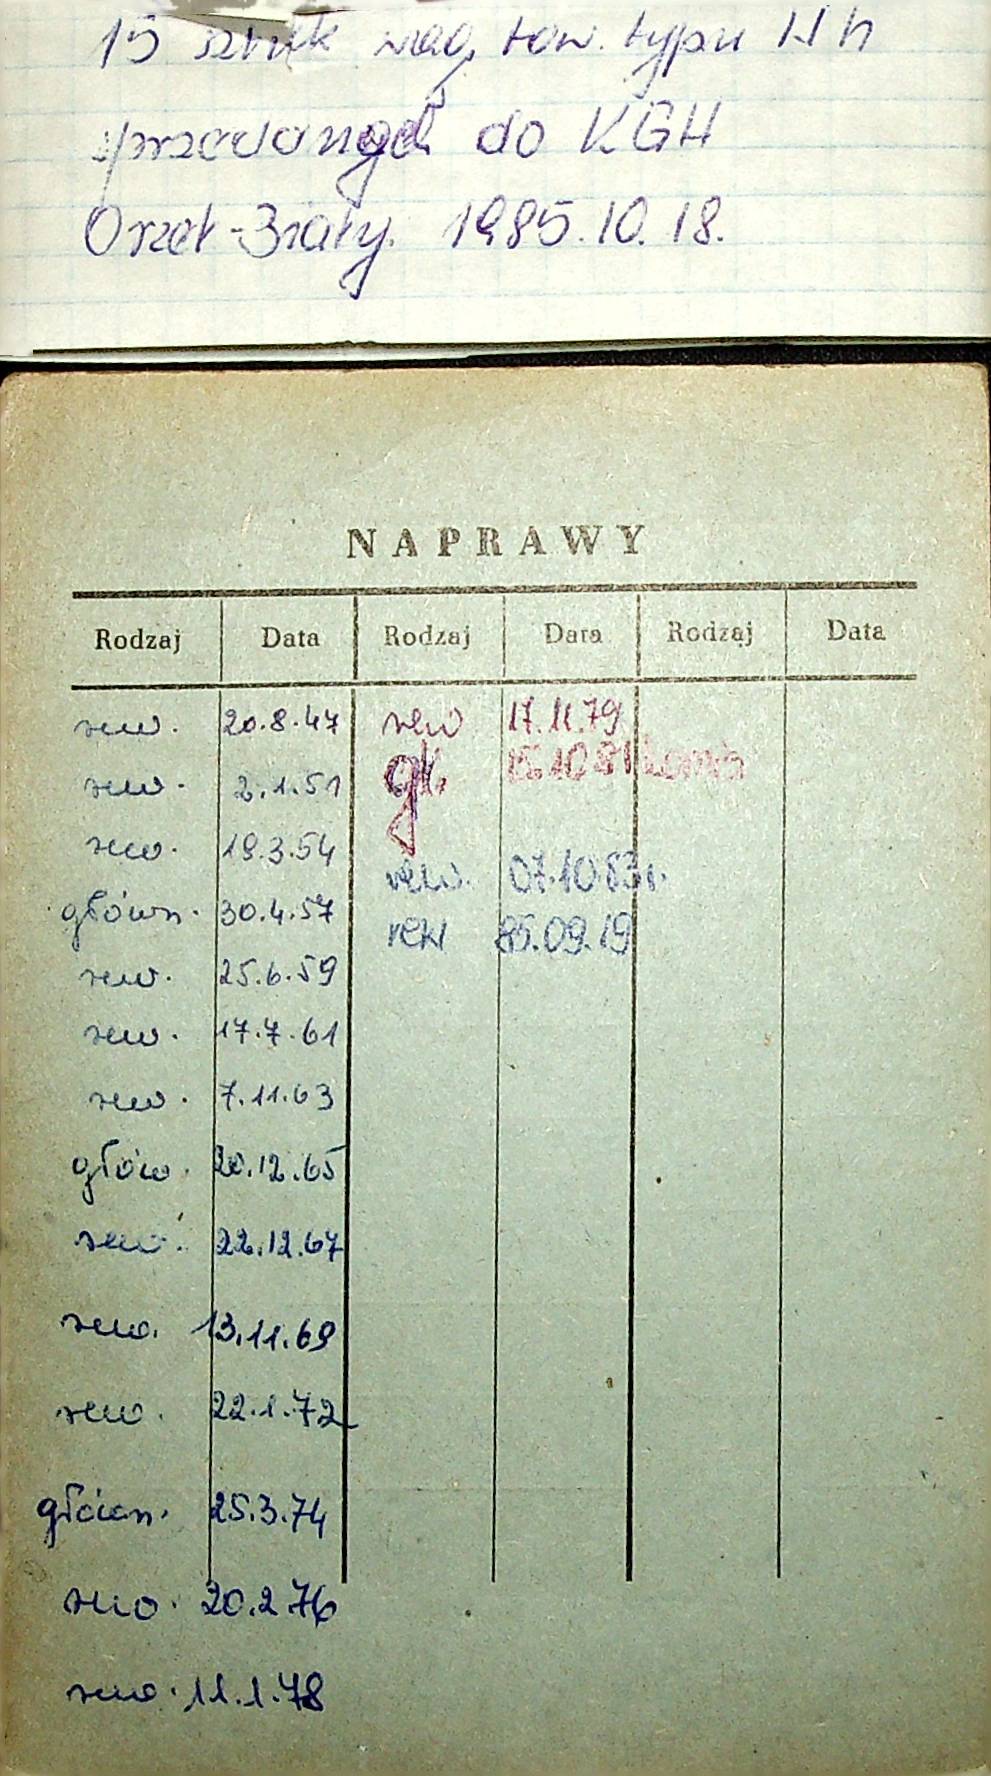 15 sztuk wag. tow. typu Hh
sprzedanych do KGH
Orzeł-Biały. 1985.10.18.
NAPRAWY
Rodzaj Data Rodzaj Data Rodzaj Data
rew. 20.8.47 rew 17.11.79
rew. 2.1.51 gł. 15.10.81
rew. 19.3.54
główn. 30.4.57 rew. 07.10.83r.
rew. 25.6.59 rew 85.09.19
rew. 17.7.61
rew. 7.11.63
głów. 20.12.65
rew. 22.12.67
rew. 13.11.69
rew. 22.1.72
główn. 25.3.74
rew. 20.2.76
rew. 11.1.78